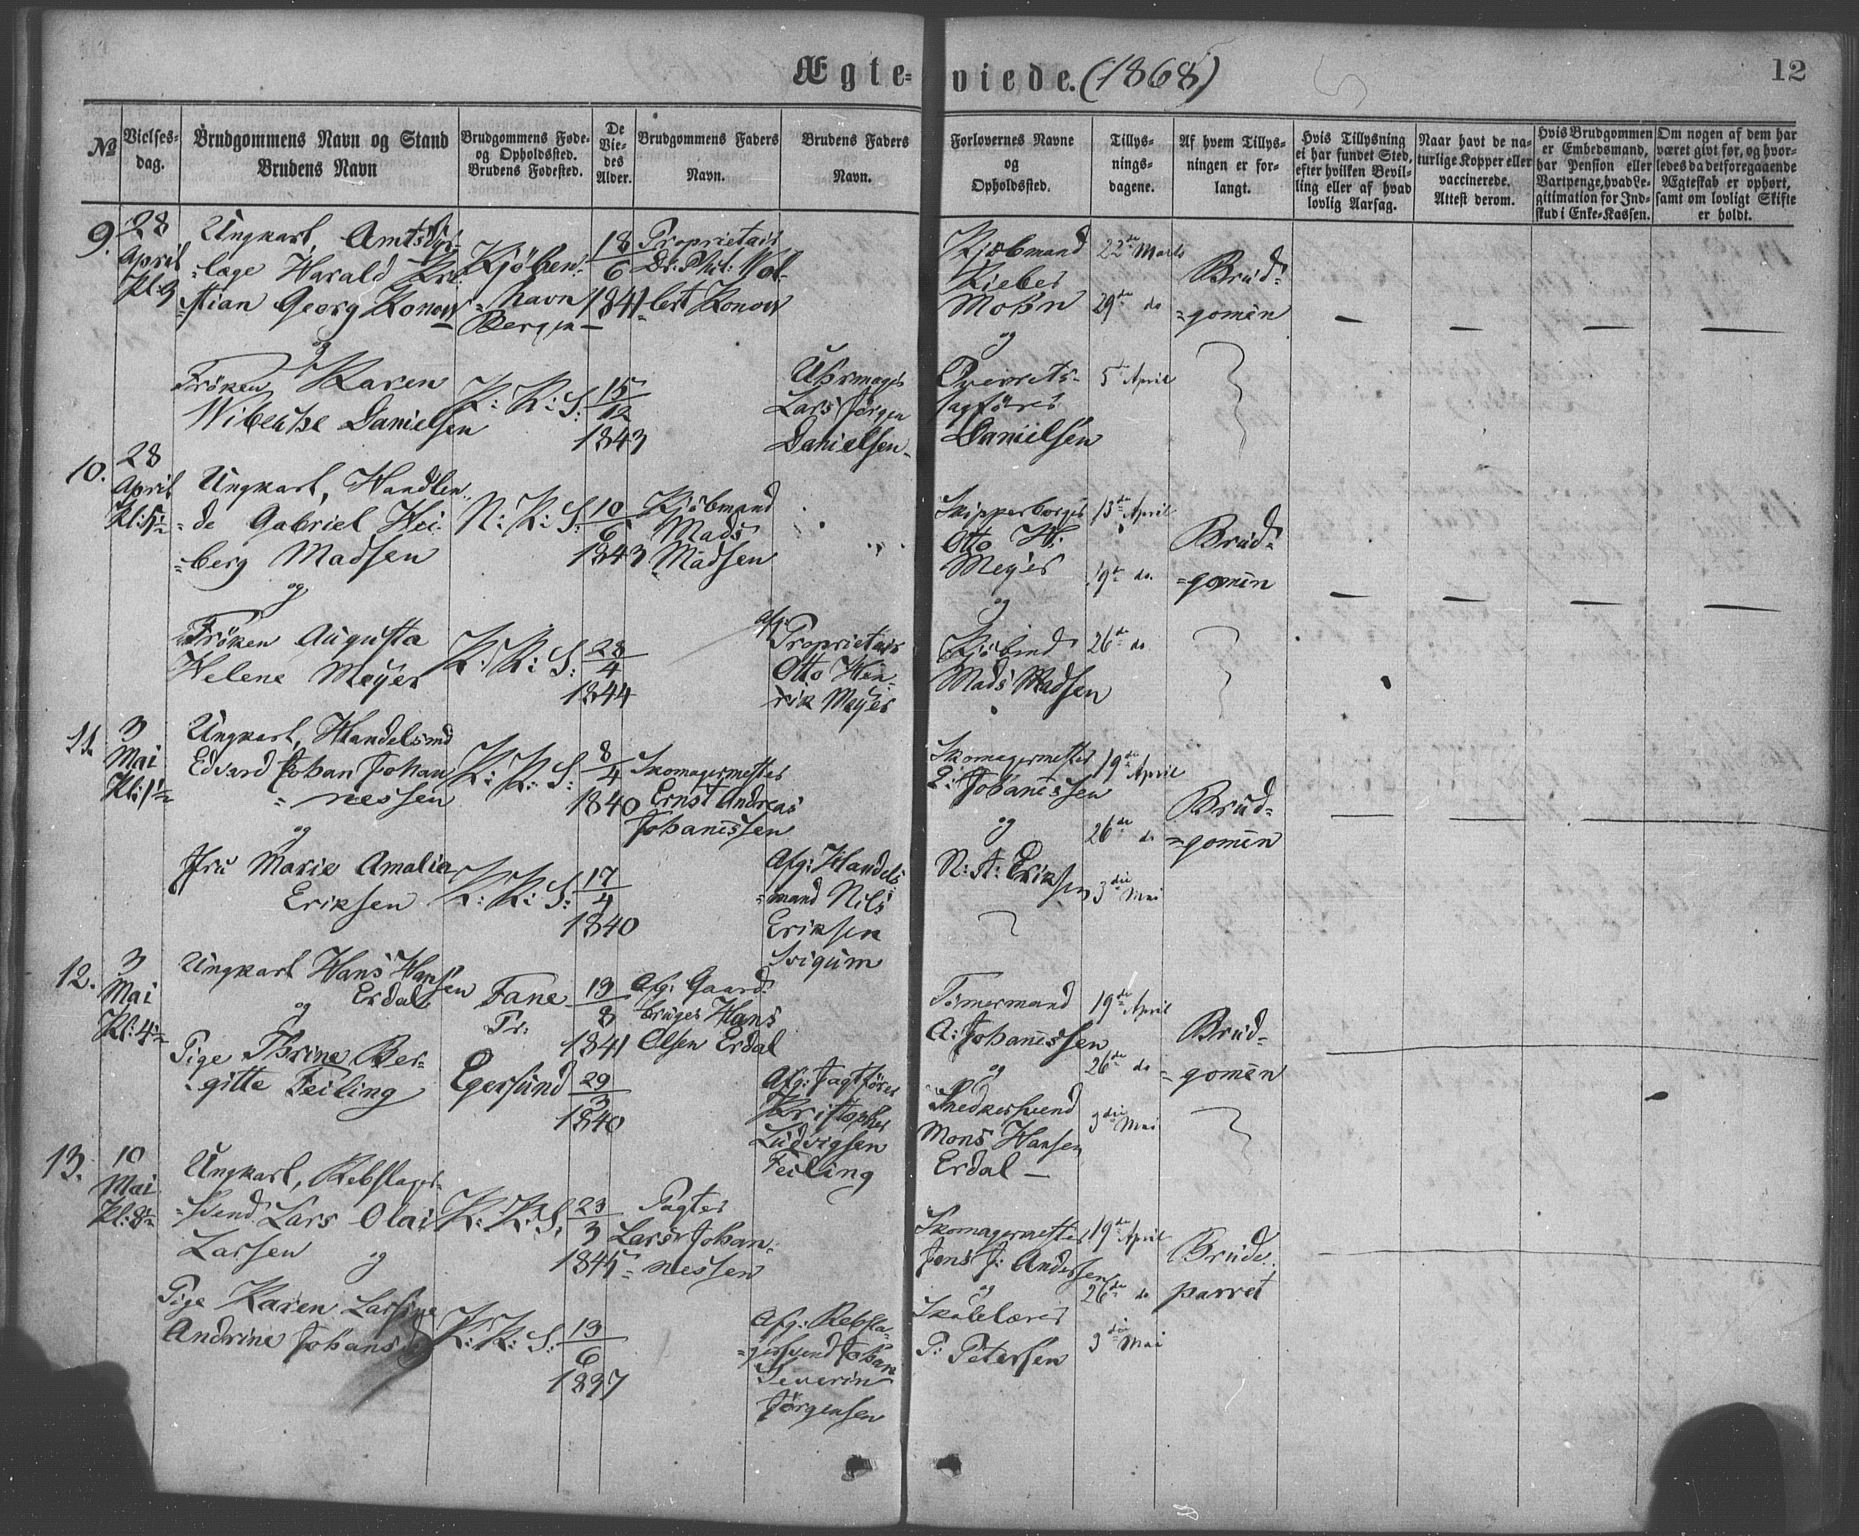 Ægte-
viede. (1868)
12
№
Vielses-
dag.
Brudgommens Navn og Stand
Brudens Navn
Brudgommens Føde-
og Opholdssted.
Brudens Fødested.
De
Vie-
des
Alder.
Brudgommens Faders
Navn.
Brudens Faders
Navn.
Forlovernes Navne
og
Opholdssted.
Tillys-
nings-
dagene.
Af hvem Tillys-
ningen er for-
langt.
Hvis Tillysning
ei har fundet Sted,
efter hvilken Bevil-
ling eller af hvad
lovlig Aarsag.
Naar havt de na-
turlige Kopper eller
vaccinerede.
Attest derom.
Hvis Brudgommen
er Embedsmand,
har Pension eller
Vartpenge, hvad Le-
gitimation for Ind-
skud i Enke-Kassen.
Om nogen af dem har
været givt før, og hvor-
ledes da det foregaaende
Ægteskab er ophørt,
samt om lovligt Skifte
er holdt.
9.
28
April
Kl: 3
Ungkarl, Amtsdyr-
-læge Harald Kri-
-stian Georg Konow
og
Frøken Karen
Wibecke Danielsen
Kjøben-
-havn
Bergen
K: K: S:
18
6
1841
15
12
1843
Proprietair
Dr: Phil: Wol-
-lert Konow
Uhrmager
Lars Jørgen
Danielsen
Kjøbmand
Kieber
Mohn
og
Overrets-
sagfører
Danielsen
22de Marts
29de do
5te April
Brud-
-gomen
10.
28
April
Kl: 5½
Ungkarl, Handlen-
-de Gabriel Hei-
-berg Madsen
og
Frøken Augusta
Helene Meyer
N: K: S:
K: K: S:
10
6
1843
28
4
1844
Kjøbmand
Mads
Madsen
Afg:
Proprietair
Otto Hen-
-rik Meyer
Skipperborger
Otto H:
Meyer
og
Kjøbmd
Mads Madsen
13de April
19de do.
26de do
Brud-
-gomen
11.
3
Mai
Kl: 1½
Ungkarl, Handelsmd
Edvard Johan Johan-
-nessen
og
Jfru Marie Amalia
Eriksen
K: K: S:
K: K: S:
8
4
1840
17
4
1840
Skomagermester
Ernst Andreas
Johanessen
Afg: Handels
-mand Nils
Eriksen
Svigum
Skomagermester
E: Johanessen
og
N: A: Eriksen
19de April
26de do
3die Mai
Brud-
-gomen
12.
3
Mai
Kl: 4½
Ungkarl Hans Hansen
Erdal
og
Pige Thrine Ber-
-gitte Feiling
Fane
Pr:
Egersund
13
8
1841
29
3
1840
Afg: Gaard-
bruger Hans
Olsen Erdal
Afg: Jagtfører
Kristopher
Ludvigsen
Feiling
Tømermand
A: Johanessen
og
Snedkersvend
Mons Hansen
Erdal
19de April
26de do
3die Mai
Brud-
-gomen
13.
10
Mai
Ungkarl, Rebslager-
-svend Lars Olai
Larsen og
Pige Karen Larsine
Andrine Johansd
K: K: S:
K: K: S:
23
3
1845
13
6
1837
Pagter
Lars Johan-
-nessen
Afg: Rebsla-
-gersvend Johan
Severin
Jørgensen
Skomagermester
Jens J: Andersen
og
Skolelærer
P: Petersen
19de April
26de do
3die Mai
Brude-
parret